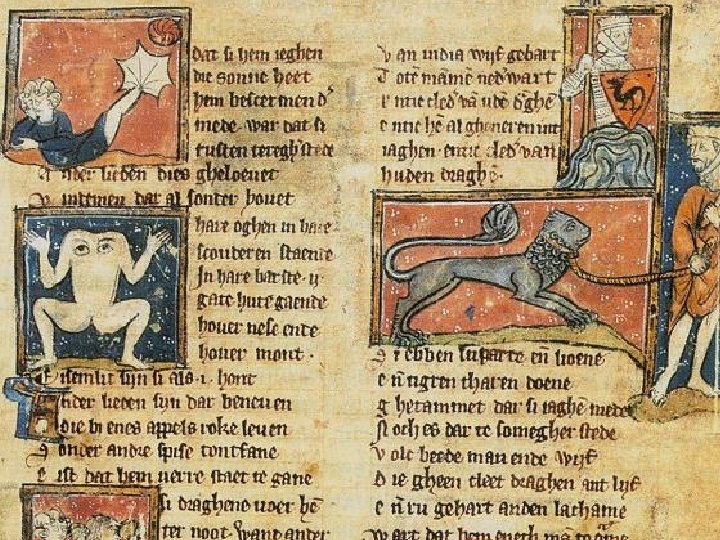 dat si hem ieghen
die sonne heet
hem bescermen d'
mede. war dat si
rusten teregh' stede
A nder lieden dies gheloeuet
V intmen dar al sonder houet
hare oghen in hare
scouderen staende
In hare borste .ij.
gate hute gaende
houer nese ende
houer mont.
E isemlic sijn si als .i. hont
A nder lieden syn dar beneuen
die bi enes appels roke leuen
S onder andre spise tontfane
E ist dat hem uerre staet te gane
si draghene uoer hē
ter noot. want ander
V an india wijf gebart
T ote māmē ned' wart
E n hē al ghene
iaghen. cled' van
huden draghē.
S i ebben lupaerte eñ lioene
E ñ tigren tharen doene
G hetammet dar si iaghē mede
N och es dar te somegher stede
V olc beede man ende wijf
D ie gheen cleet draghen ant lijf
E ñ ru gehart anden lachame
W art dat hem